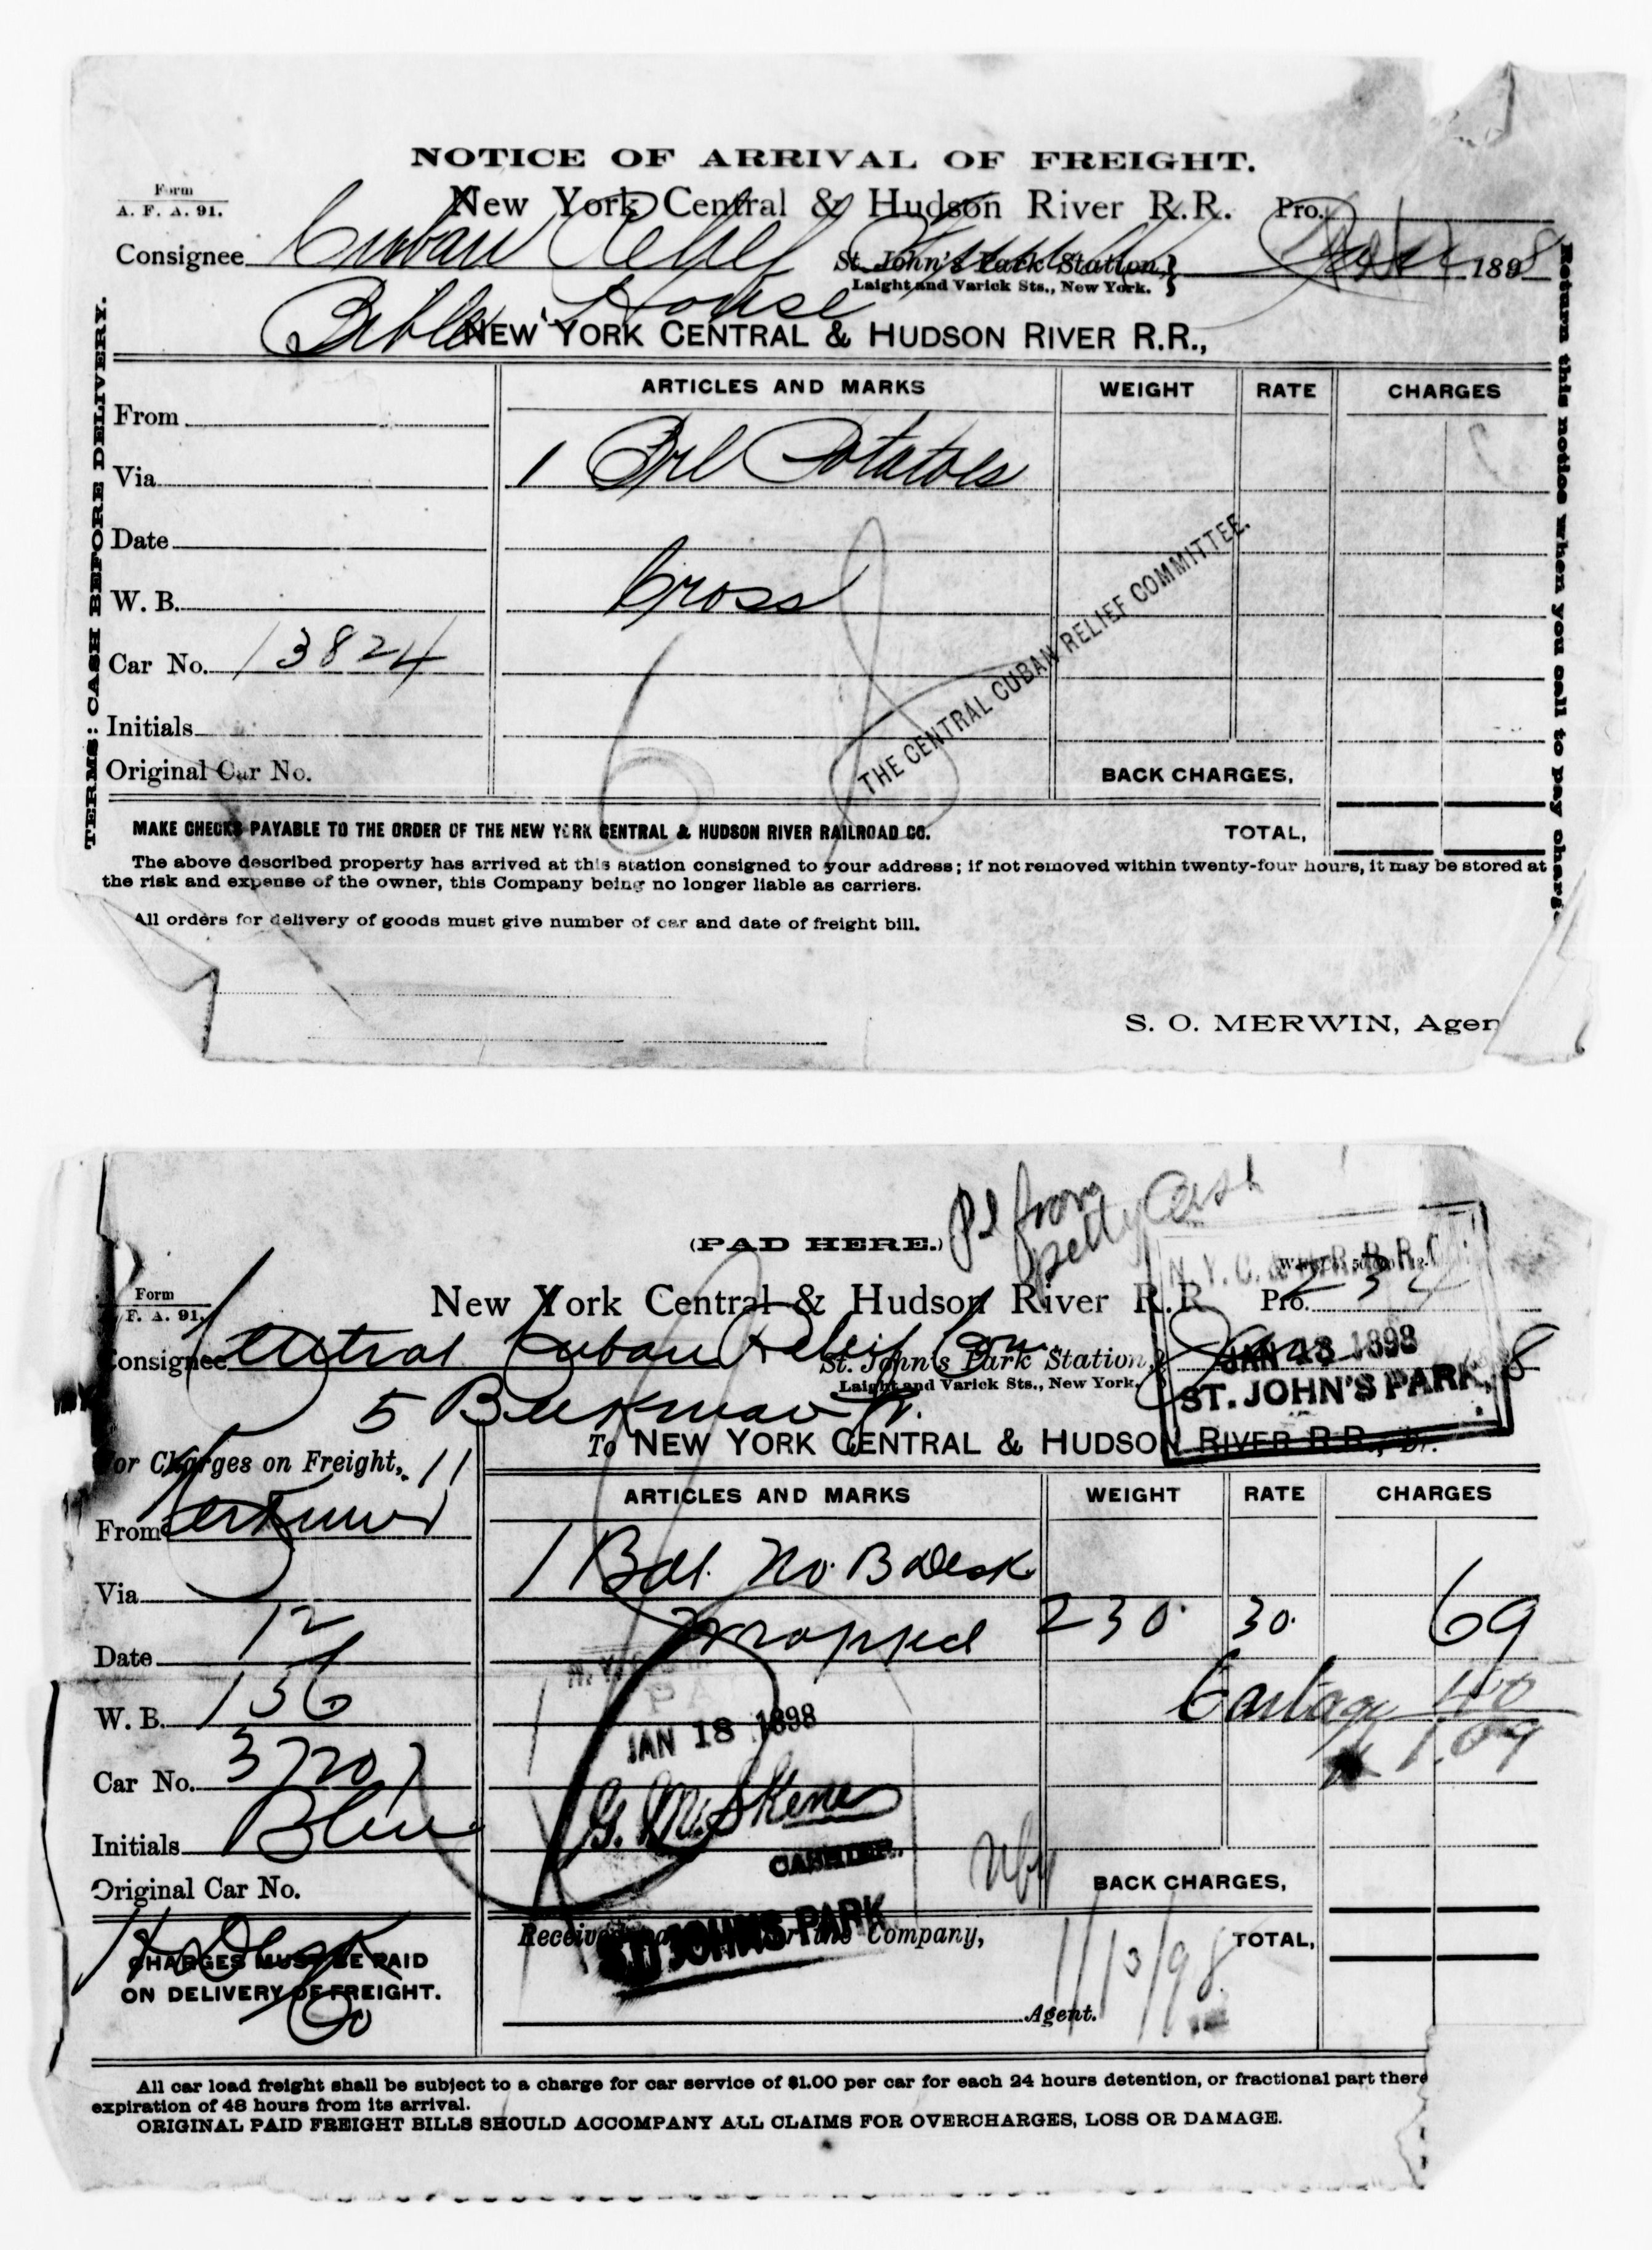 NOTICE OF ARRIVAL OF FREIGHT.
Form
A. F. A. 91.
New York Central & Hudson River R.R. Pro.
Consignee Cuban Relief St. John's Park Station, 1898
Laight and Varick Sts., New York.
Bible House
NEW YORK CENTRAL & HUDSON RIVER R.R.,
TERMS: CASH BEFORE DELIVERY.
Return this notice when you call to pay charge
ARTICLES AND MARKS WEIGHT RATE CHARGES
From
Via 1 Brl Potatoes
Date
W. B. Cross
Car No. 13824
Initials
Original Car No. BACK CHARGES,
THE CENTRAL CUBAN RELIEF COMMITTEE.
MAKE CHECKS PAYABLE TO THE ORDER OF THE NEW YORK CENTRAL & HUDSON RIVER RAILROAD CO. TOTAL,
The above described property has arrived at this station consigned to your address; if not removed within twenty-four hours, it may be stored at
the risk and expense of the owner, this Company being no longer liable as carriers.
All orders for delivery of goods must give number of car and date of freight bill.
S. O. MERWIN, Agen
Pd from
petty Cash
(PAD HERE.)
Form
F. A. 91.
New York Central & Hudson River R.R. Pro. 234
Consignee Central Cuban Relief Com St. John's Park Station, 8
Laight and Varick Sts., New York.
JAN 13 1898
ST. JOHN'S PARK,
5 Beekman St.
To NEW YORK CENTRAL & HUDSON RIVER R.R., Dr.
For Charges on Freight, 11
ARTICLES AND MARKS WEIGHT RATE CHARGES
From Herkimer
1 Bdl. No. B Desk
Via
Wrapped 230 30 69
Date 12
Cartage 40
W. B. 136
1.09
JAN 18 1898
Car No. 37207
G. M. Skene
Initials Blue
CASHIER.
Original Car No. BACK CHARGES,
ST. JOHNS PARK
Received for the Company, TOTAL,
CHARGES MUST BE PAID
ON DELIVERY OF FREIGHT.
H Desk
Co
1/13/98
Agent.
All car load freight shall be subject to a charge for car service of $1.00 per car for each 24 hours detention, or fractional part there
expiration of 48 hours from its arrival.
ORIGINAL PAID FREIGHT BILLS SHOULD ACCOMPANY ALL CLAIMS FOR OVERCHARGES, LOSS OR DAMAGE.